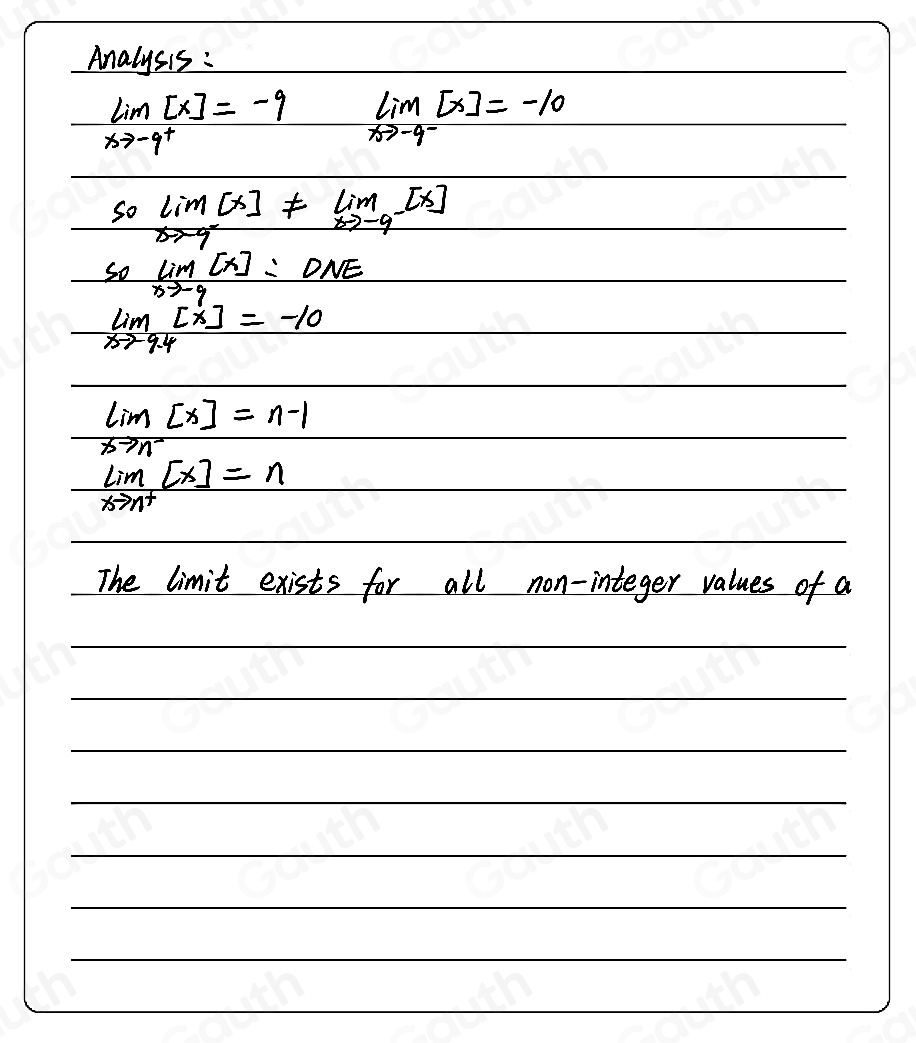 Analysis:
lim [x] = -9    lim [x] = -10
x→-9⁺    x→-9⁻
so lim [x] ≠ lim [x]
x→-9⁻    x→-9⁻
so lim [x] : DNE
x→-9
lim [x] = -10
x→-9.4
lim [x] = n-1
x→n⁻
lim [x] = n
x→n⁺
The limit exists for all non-integer values of a